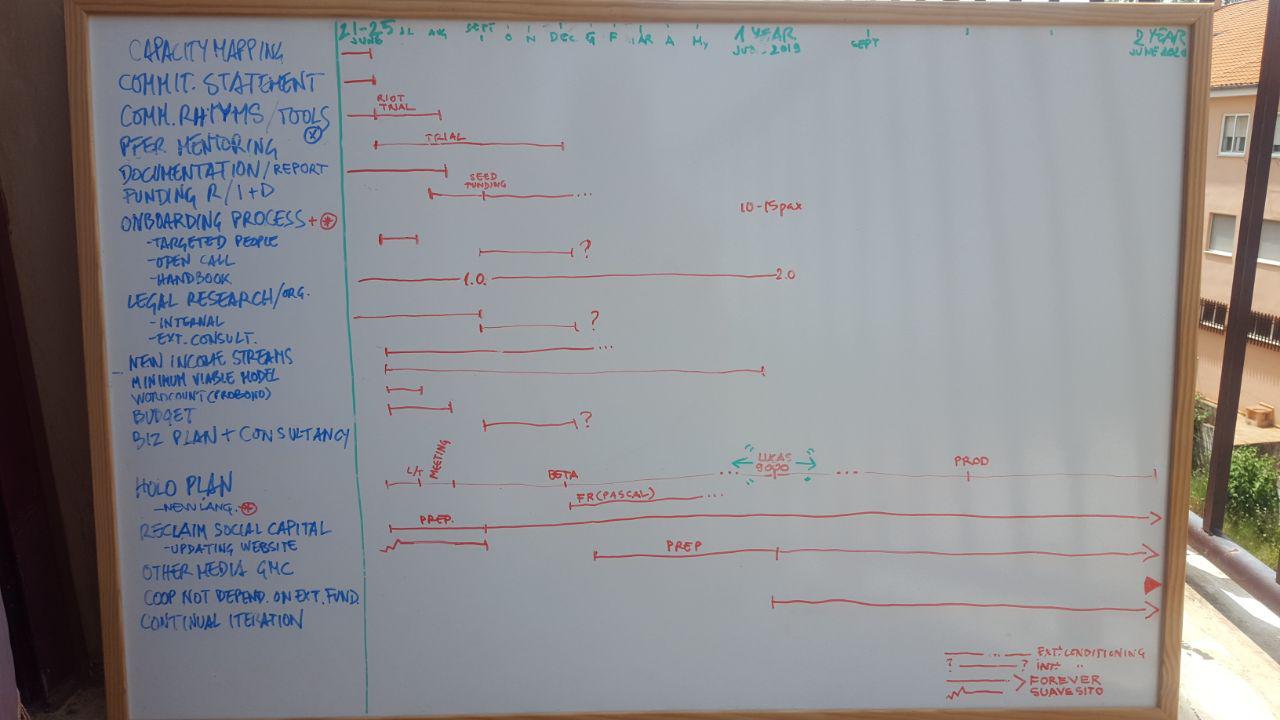 21-25 JL AUG SEPT O N DEC G F MAR A MY 1 YEAR SEPT 2 YEAR
JUNE JUN-2019 JUNE 2020
CAPACITY MAPPING
COMMIT. STATEMENT
RIOT
TRIAL
COMM. RHYMS/TOOLS
PEER MENTORING (X) TRIAL
DOCUMENTATION/REPORT
SEED
FUNDING
FUNDING R/I+D ...
10-15 pax
ONBOARDING PROCESS + *
-TARGETED PEOPLE
-OPEN CALL ?
-HANDBOOK 1.0. 2.0
LEGAL RESEARCH/ORG.
-INTERNAL
-EXT. CONSULT. ?
NEW INCOME STREAMS ...
MINIMUM VIABLE MODEL
WORDCOUNT (PROBONO)
BUDGET
BIZ PLAN + CONSULTANCY ?
L/T MEETING BETA ... LUCAS ... PROD
9000
HOLO PLAN
FR (PASCAL) ...
-NEW LANG. *
RECLAIM SOCIAL CAPITAL PREP.
-UPDATING WEBSITE
OTHER MEDIA GMC PREP
COOP NOT DEPEND. ON EXT. FUND.
CONTINUAL ITERATION
... EXT. CONDITIONING
? ? INT. "
FOREVER
SUAVESITO